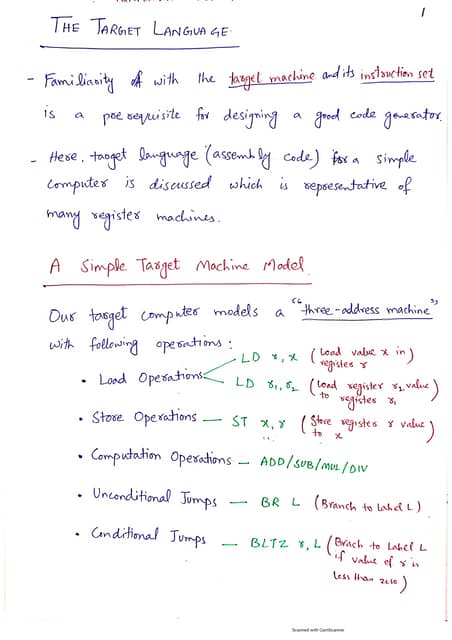 1
THE TARGET LANGUAGE.
- Familiarity with the target machine and its instruction set
is a prerequisite for designing a good code generator.
- Here, target language (assembly code) for a simple
computer is discussed which is representative of
many register machines.
A Simple Target Machine Model.
Our target computer models a "three-address machine"
with following operations:
• Load Operations
LD r, x (Load value x in
register r)
LD r1, r2 (Load register r2 value
to register r1)
• Store Operations — ST x, r (Store register r value
to x)
• Computation Operations — ADD/SUB/MUL/DIV
• Unconditional Jumps — BR L (Branch to Label L)
• Conditional Jumps — BLTZ r, L (Brach to Label L
if value of r is
less than zero)
Scanned with CamScanner